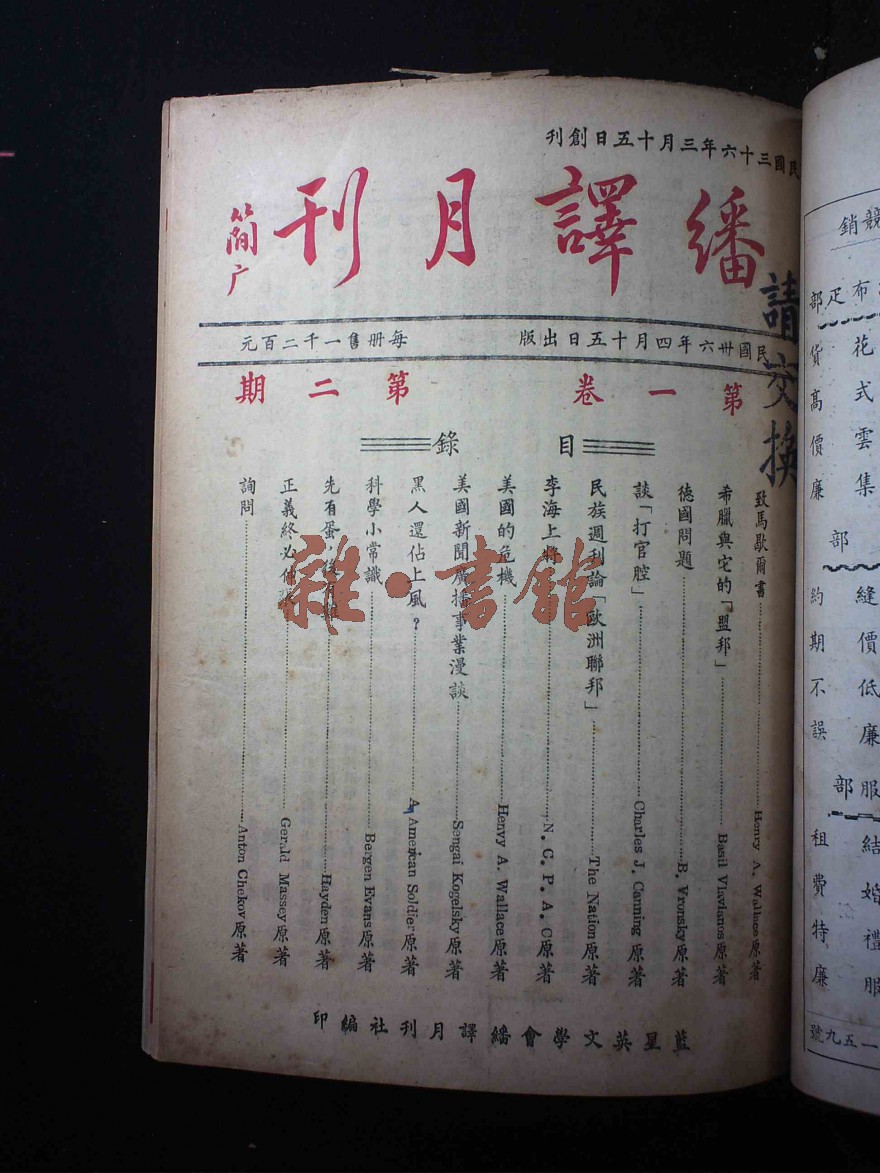 民國三十六年三月十五日創刊
繙譯月刊
簡广
民國卅六年四月十五日出版
每册售一千二百元
第一卷
第二期
目錄
致馬歇爾書 Henry A. Wallace原著
希臘與它的「盟邦」 Basil Vlavianos原著
德國問題 B. Vronsky原著
談「打官腔」 Charles J. Canning原著
民族週刊論「歐洲聯邦」 The Nation原著
李海上將 N. C. P. A. C原著
美國的危機 Henvy A. Wallace原著
美國新聞廣播事業漫談 Sengai Kogelsky原著
黑人還佔上風？ A, American Soldier原著
科學小常識 Bergen Evans原著
先有蛋，後有 Hayden原著
正義終必伸 Gerald Massey原著
詢問 Anton Chekov原著
藍星英文學會繙譯月刊社編印
請交換
雜·書館
競銷
布疋部
花式雲集
貨高價廉
部
縫價低廉
約期不誤
服部
結婚禮服
租費特廉
一五九號